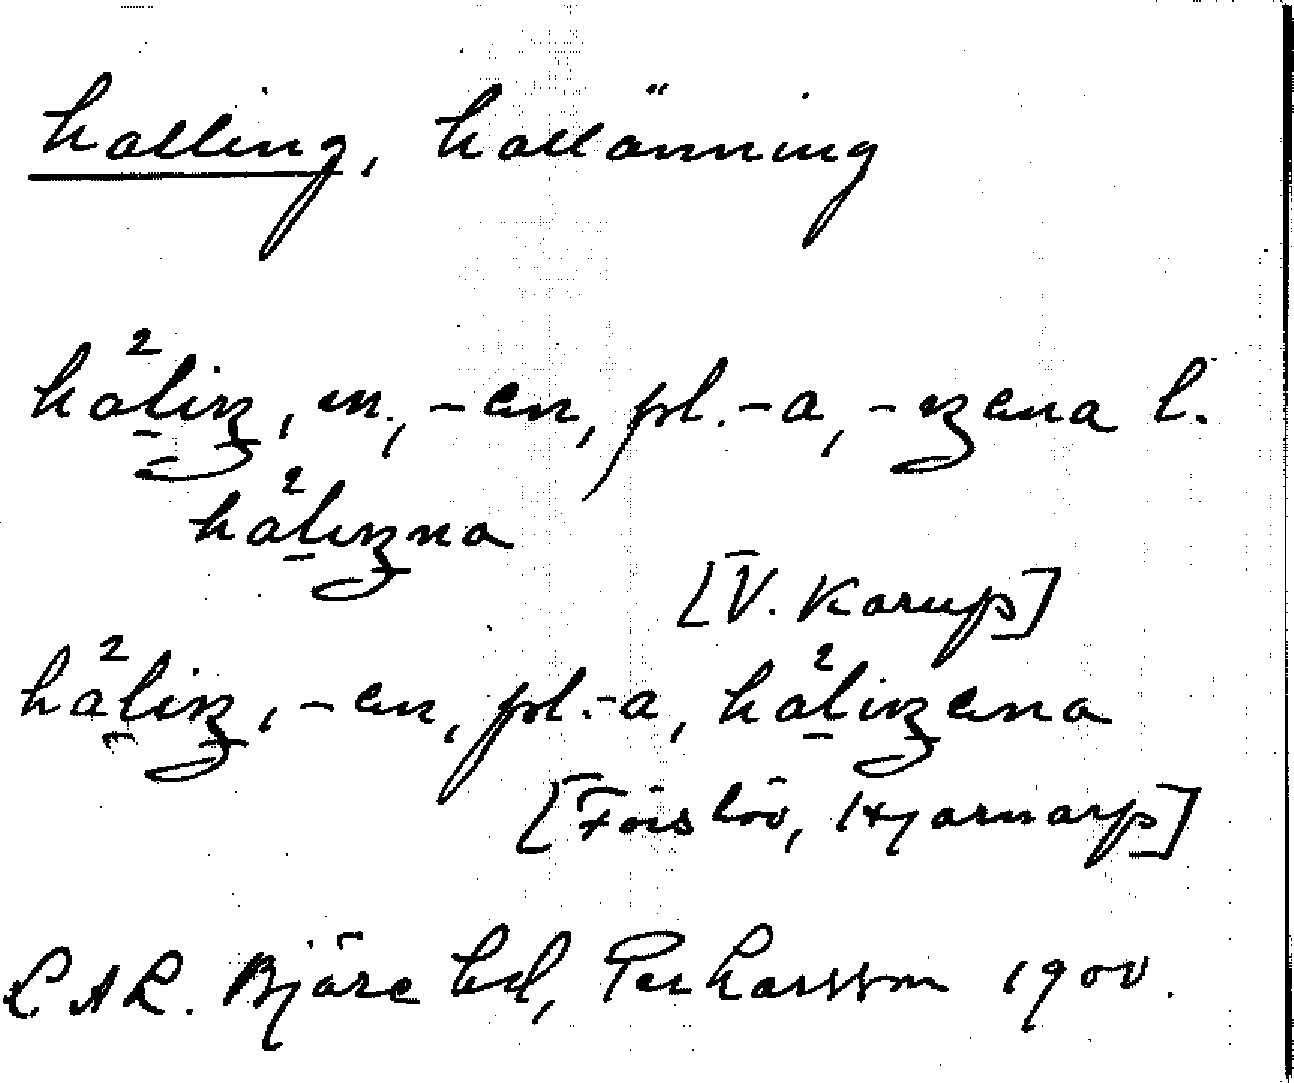 halling, hallänning
há²liŋ, m., -en, pl. -a, -ŋena l.
há²liŋna
[V. Karup]
há²liŋ, -en, pl. -a, há²liŋena
[Förslöv, Hjärnarp]
LAL. Bjäre hd, Per Larsson 1900.